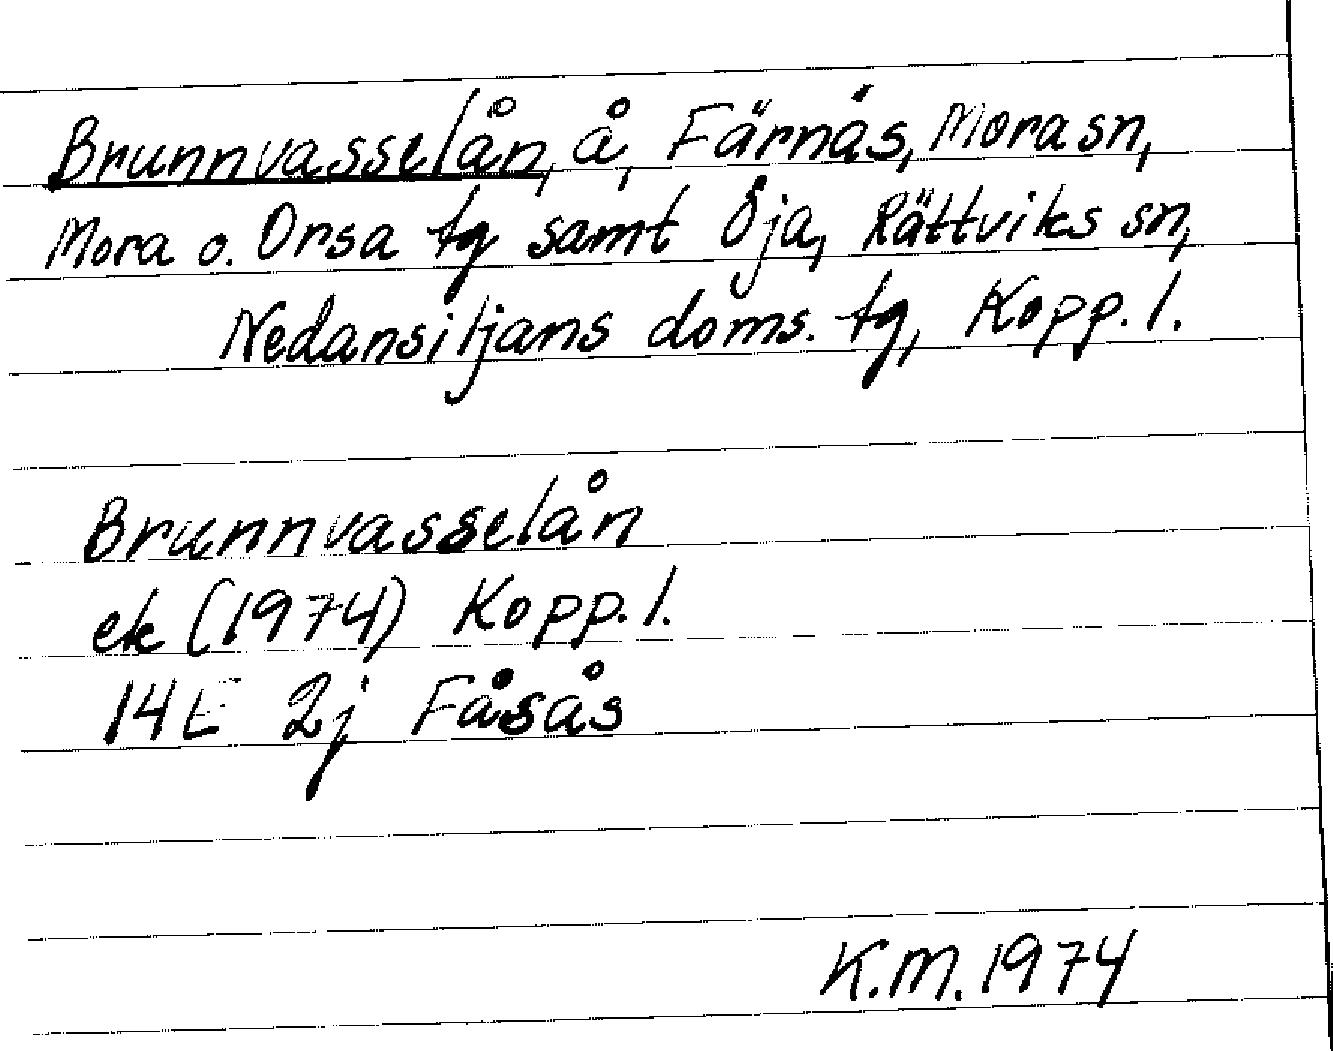 Brunnvasselån, å, Färnäs, Mora sn,
Mora o. Orsa tg samt Öja, Rättviks sn,
Nedansiljans doms. tg, Kopp. l.
Brunnvasselån
ek (1974) Kopp. l.
14E 2j Fåsås
K.M. 1974